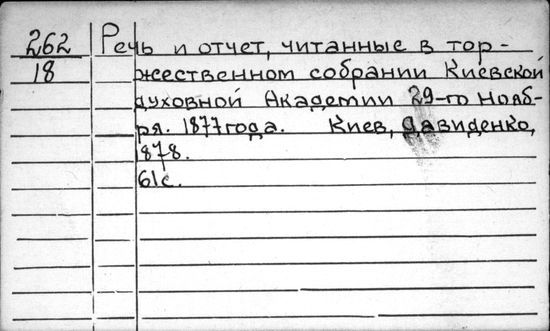 262
18
Речь и отчет, читанные в тор-
жественном собрании Киевской
духовной Академии 29-го нояб-
ря. 1877 года. Киев, Давиденко,
1878.
61с.